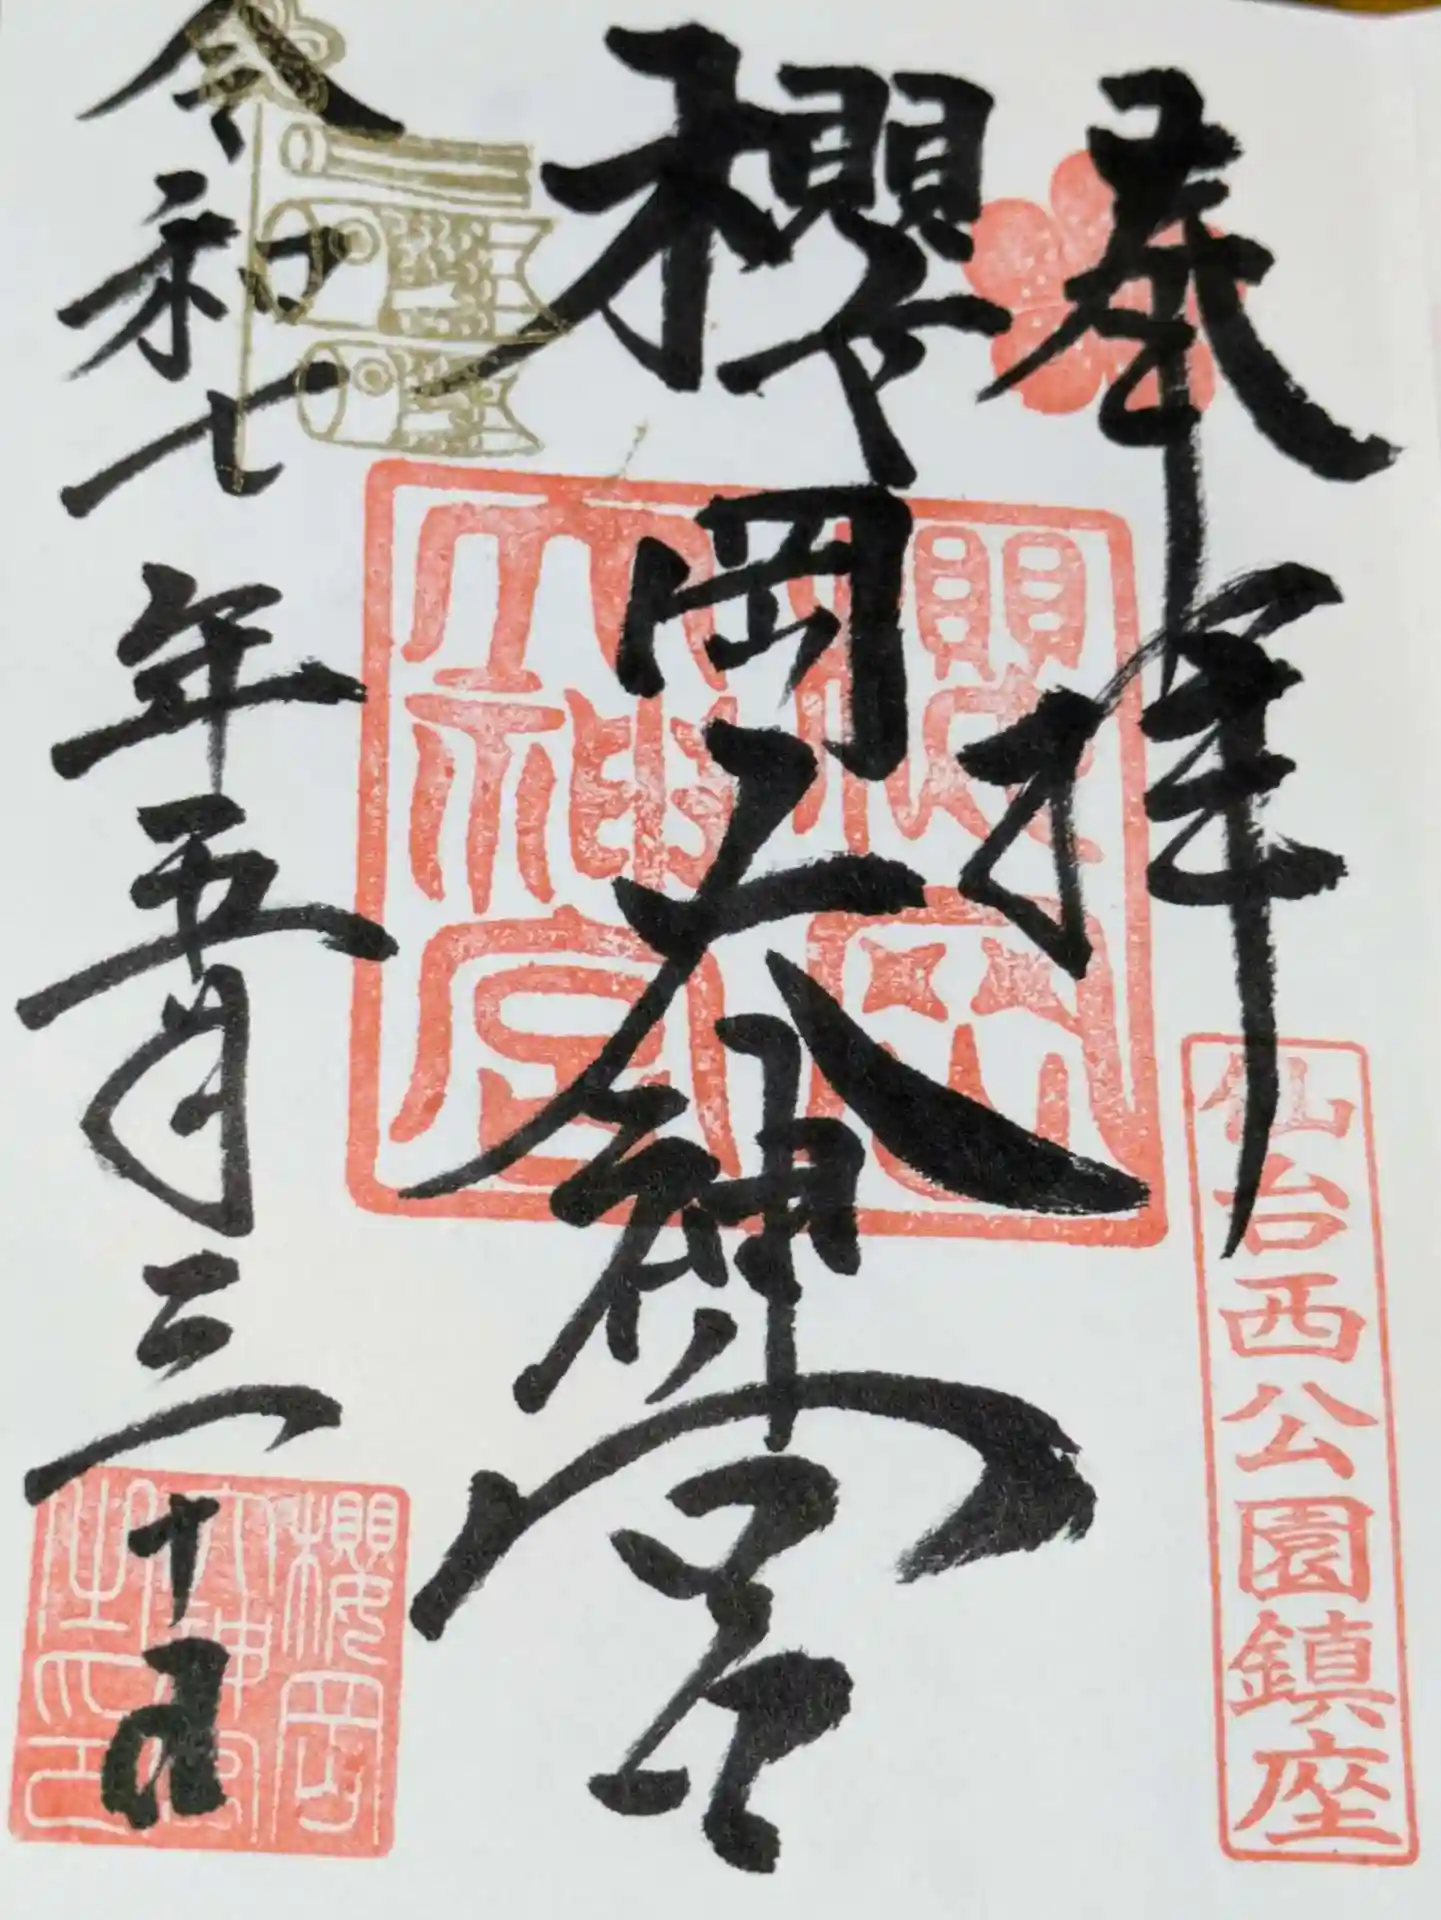 奉拝
仙台西公園鎮座
櫻岡大神宮
櫻岡
大神宮
令和七年五月三十日
櫻岡
大神宮
之印